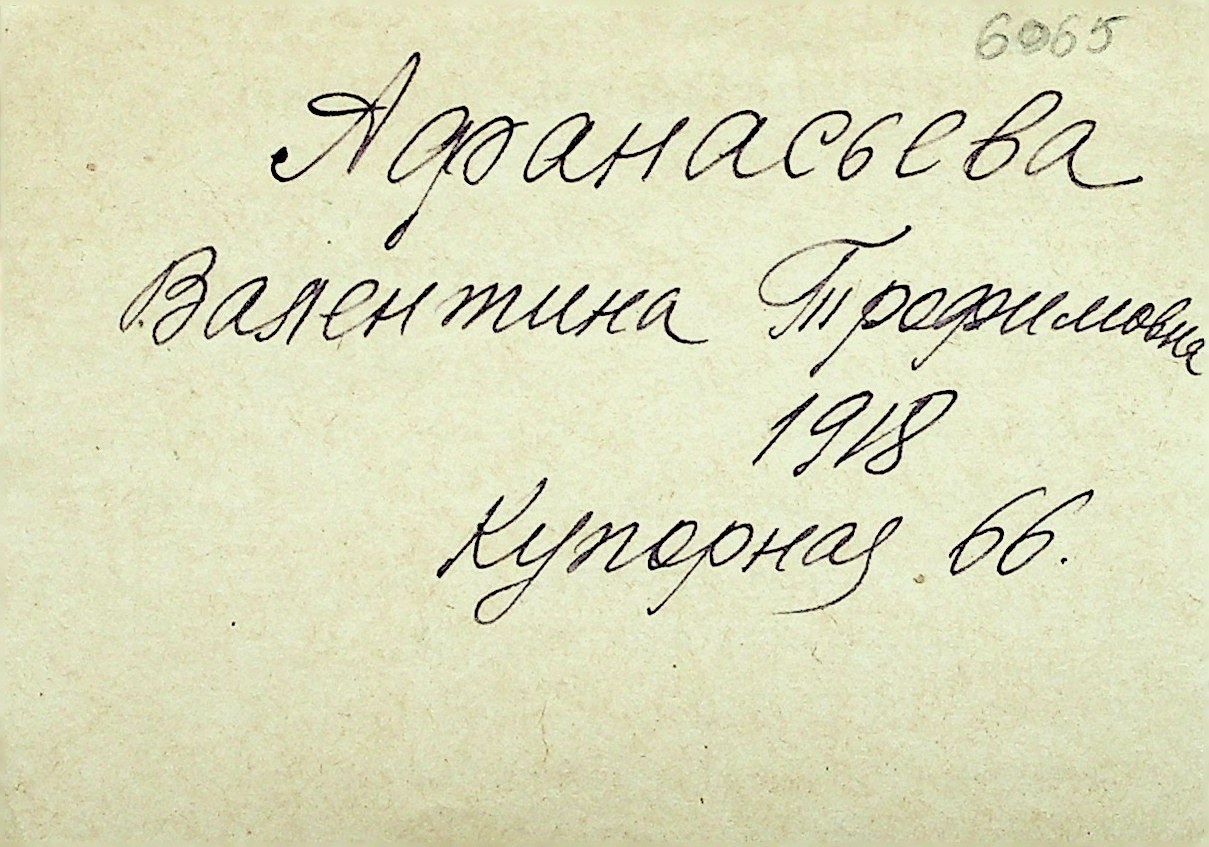 6065
Афанасьева
Валентина Трофимовна
1918
Купорная 66.